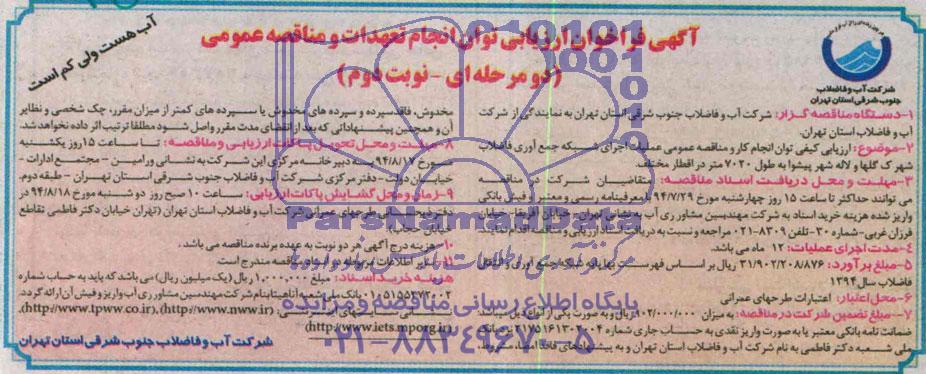 آگهی فراخوان ارزیابی توان انجام تعهدات و مناقصه عمومی
(دو مرحله ای - نوبت دوم)
آب هست ولی کم است
شرکت آب و فاضلاب
جنوب شرقی استان تهران
۱-دستگاه مناقصه گزار: شرکت آب و فاضلاب جنوب شرقی استان تهران به نمایندگی از شرکت
آب و فاضلاب استان تهران.
۲-موضوع: ارزیابی کیفی توان انجام کار و مناقصه عمومی عملیات اجرای شبکه جمع آوری فاضلاب
شهرک گلها و لاله شهر پیشوا به طول ۷۰۲۰ متر در اقطار مختلف
۳-مهلت و محل دریافت اسناد مناقصه: متقاضیان شرکت در مناقصه
می توانند حداکثر تا ساعت ۱۵ روز چهارشنبه مورخ ۹۴/۷/۲۹ با معرفینامه رسمی و معتبر و فیش بانکی
واریز شده هزینه خرید اسناد به شرکت مهندسین مشاور ری آب به نشانی تهران- خیابان آفریقا- خیابان
فرزان غربی-شماره ۳۰-تلفن ۸۳۰۹-۰۲۱ مراجعه و نسبت به دریافت اسناد ارزیابی و مناقصه اقدام نمایند.
۴-مدت اجرای عملیات: ۱۲ ماه می باشد.
۵-مبلغ برآورد: ۳۱/۹۰۲/۲۰۸/۸۷۶ ریال بر اساس فهرست بهای پایه شبکه جمع آوری و انتقال
فاضلاب سال ۱۳۹۴
۶-محل اعتبار: اعتبارات طرحهای عمرانی
۷-مبلغ تضمین شرکت در مناقصه: به میزان ۱۰۲/۰۰۰/۰۰۰ ریال و به صورت یکی از انواع ذیل میباشد
ضمانت نامه بانکی معتبر یا به صورت واریز نقدی به حساب جاری شماره نزد بانک
ملی شعبه دکتر فاطمی به نام شرکت آب و فاضلاب استان تهران و به پیشنهادهای فاقد امضاء، مشروط،
مخدوش، فاقد سپرده و سپرده های مخدوش یا سپرده های کمتر از میزان مقرر، چک شخصی و نظایر
آن و همچنین پیشنهاداتی که بعد از انقضای مدت مقرر واصل شود مطلقا ترتیب اثر داده نخواهد شد.
۸-مهلت و محل تحویل پاکات ارزیابی و مناقصه: تا ساعت ۱۵ روز یکشنبه
مورخ ۹۴/۸/۱۷ به دبیرخانه مرکزی این شرکت به نشانی ورامین - مجتمع ادارات -
خیابان دولت- دفتر مرکزی شرکت آب و فاضلاب جنوب شرقی استان تهران - طبقه دوم.
۹-زمان و محل گشایش پاکات ارزیابی: ساعت ۱۰ صبح روز دوشنبه مورخ ۹۴/۸/۱۸ در
دفتر طرحهای عمرانی شرکت آب و فاضلاب استان تهران (تهران خیابان دکتر فاطمی تقاطع
خیابان حجاب)
۱۰-هزینه درج آگهی هر دو نوبت به عهده برنده مناقصه می باشد.
۱۱-سایر اطلاعات مربوطه در اسناد مناقصه مندرج است
هزینه خرید اسناد: مبلغ ۱/۰۰۰/۰۰۰ ریال (یک میلیون ریال) می باشد که باید به حساب شماره
بانک ملی شعبه آناهیتا بنام شرکت مهندسین مشاور ری آب واریز و فیش آن ارائه گردد.
نشانی سایت‌های اینترنتی: (http://www.tpww.co.ir)،(http://www.nww.ir)،
(http://www.iets.mporg.ir)
شرکت آب و فاضلاب جنوب شرقی استان تهران
ParsNamadData
پایگاه اطلاع رسانی مناقصه و مزایده
۰۲۱-۸۸۳۴۹۶۷۰-۵